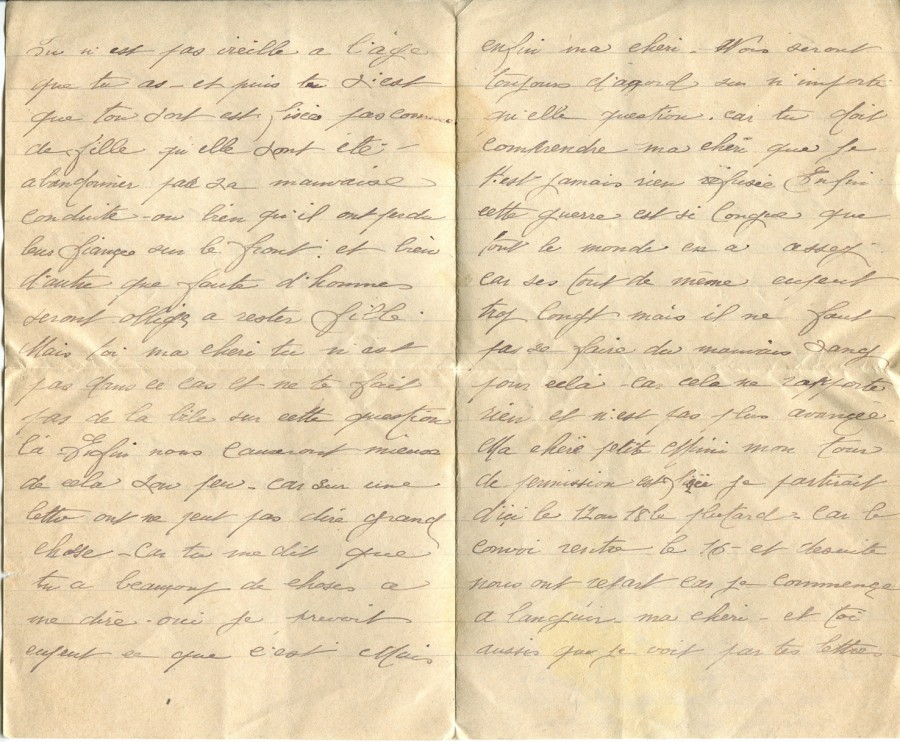 Tu n'est pas vieille a l'âge
que tu as - et puis tu s'est
que ton sort est fixée pas comme
de fille qu'elle sont étè -
abandonner par sa mauvaise
conduite - ou bien qu'il ont perdu
leur fiancé sur le front. et bien
d'autre que faute d'hommes
seront obligée a rester fille.
Mais toi ma cheri tu n'est
pas dans ce cas et ne te fait
pas de la bile sur cette question
là Enfin nous causeront mieux
de cela sou peu - car sur une
lettre ont ne peut pas dire grand
chosse - Car tu me dit que
tu a beaucoup de choses a
me dire - oui je prevoit
ce que c'est Mais
enfin ma cheri - Nous seront
toujours d'agord sur n'importe
qu'elle question. car tu doit
comprendre ma chèri que je
t'est jamais rien réfusée Enfin
cette guerre est si longue que
tout le monde en a assez -
car ses tout de même
trop longt mais il ne faut
pas se faire du mauvais sang
pour celà - car cela ne rapporte
rien et n'est pas plus avangée -
Ma chère petite mon tour
de permission est je partirait
d'ici le 12 au 18 le plutard - car le
convoi rentre le 16 - et desuite
nous ont repart car je commençe
a languir ma chèri - et toi
aussis que je voit par tes lettres